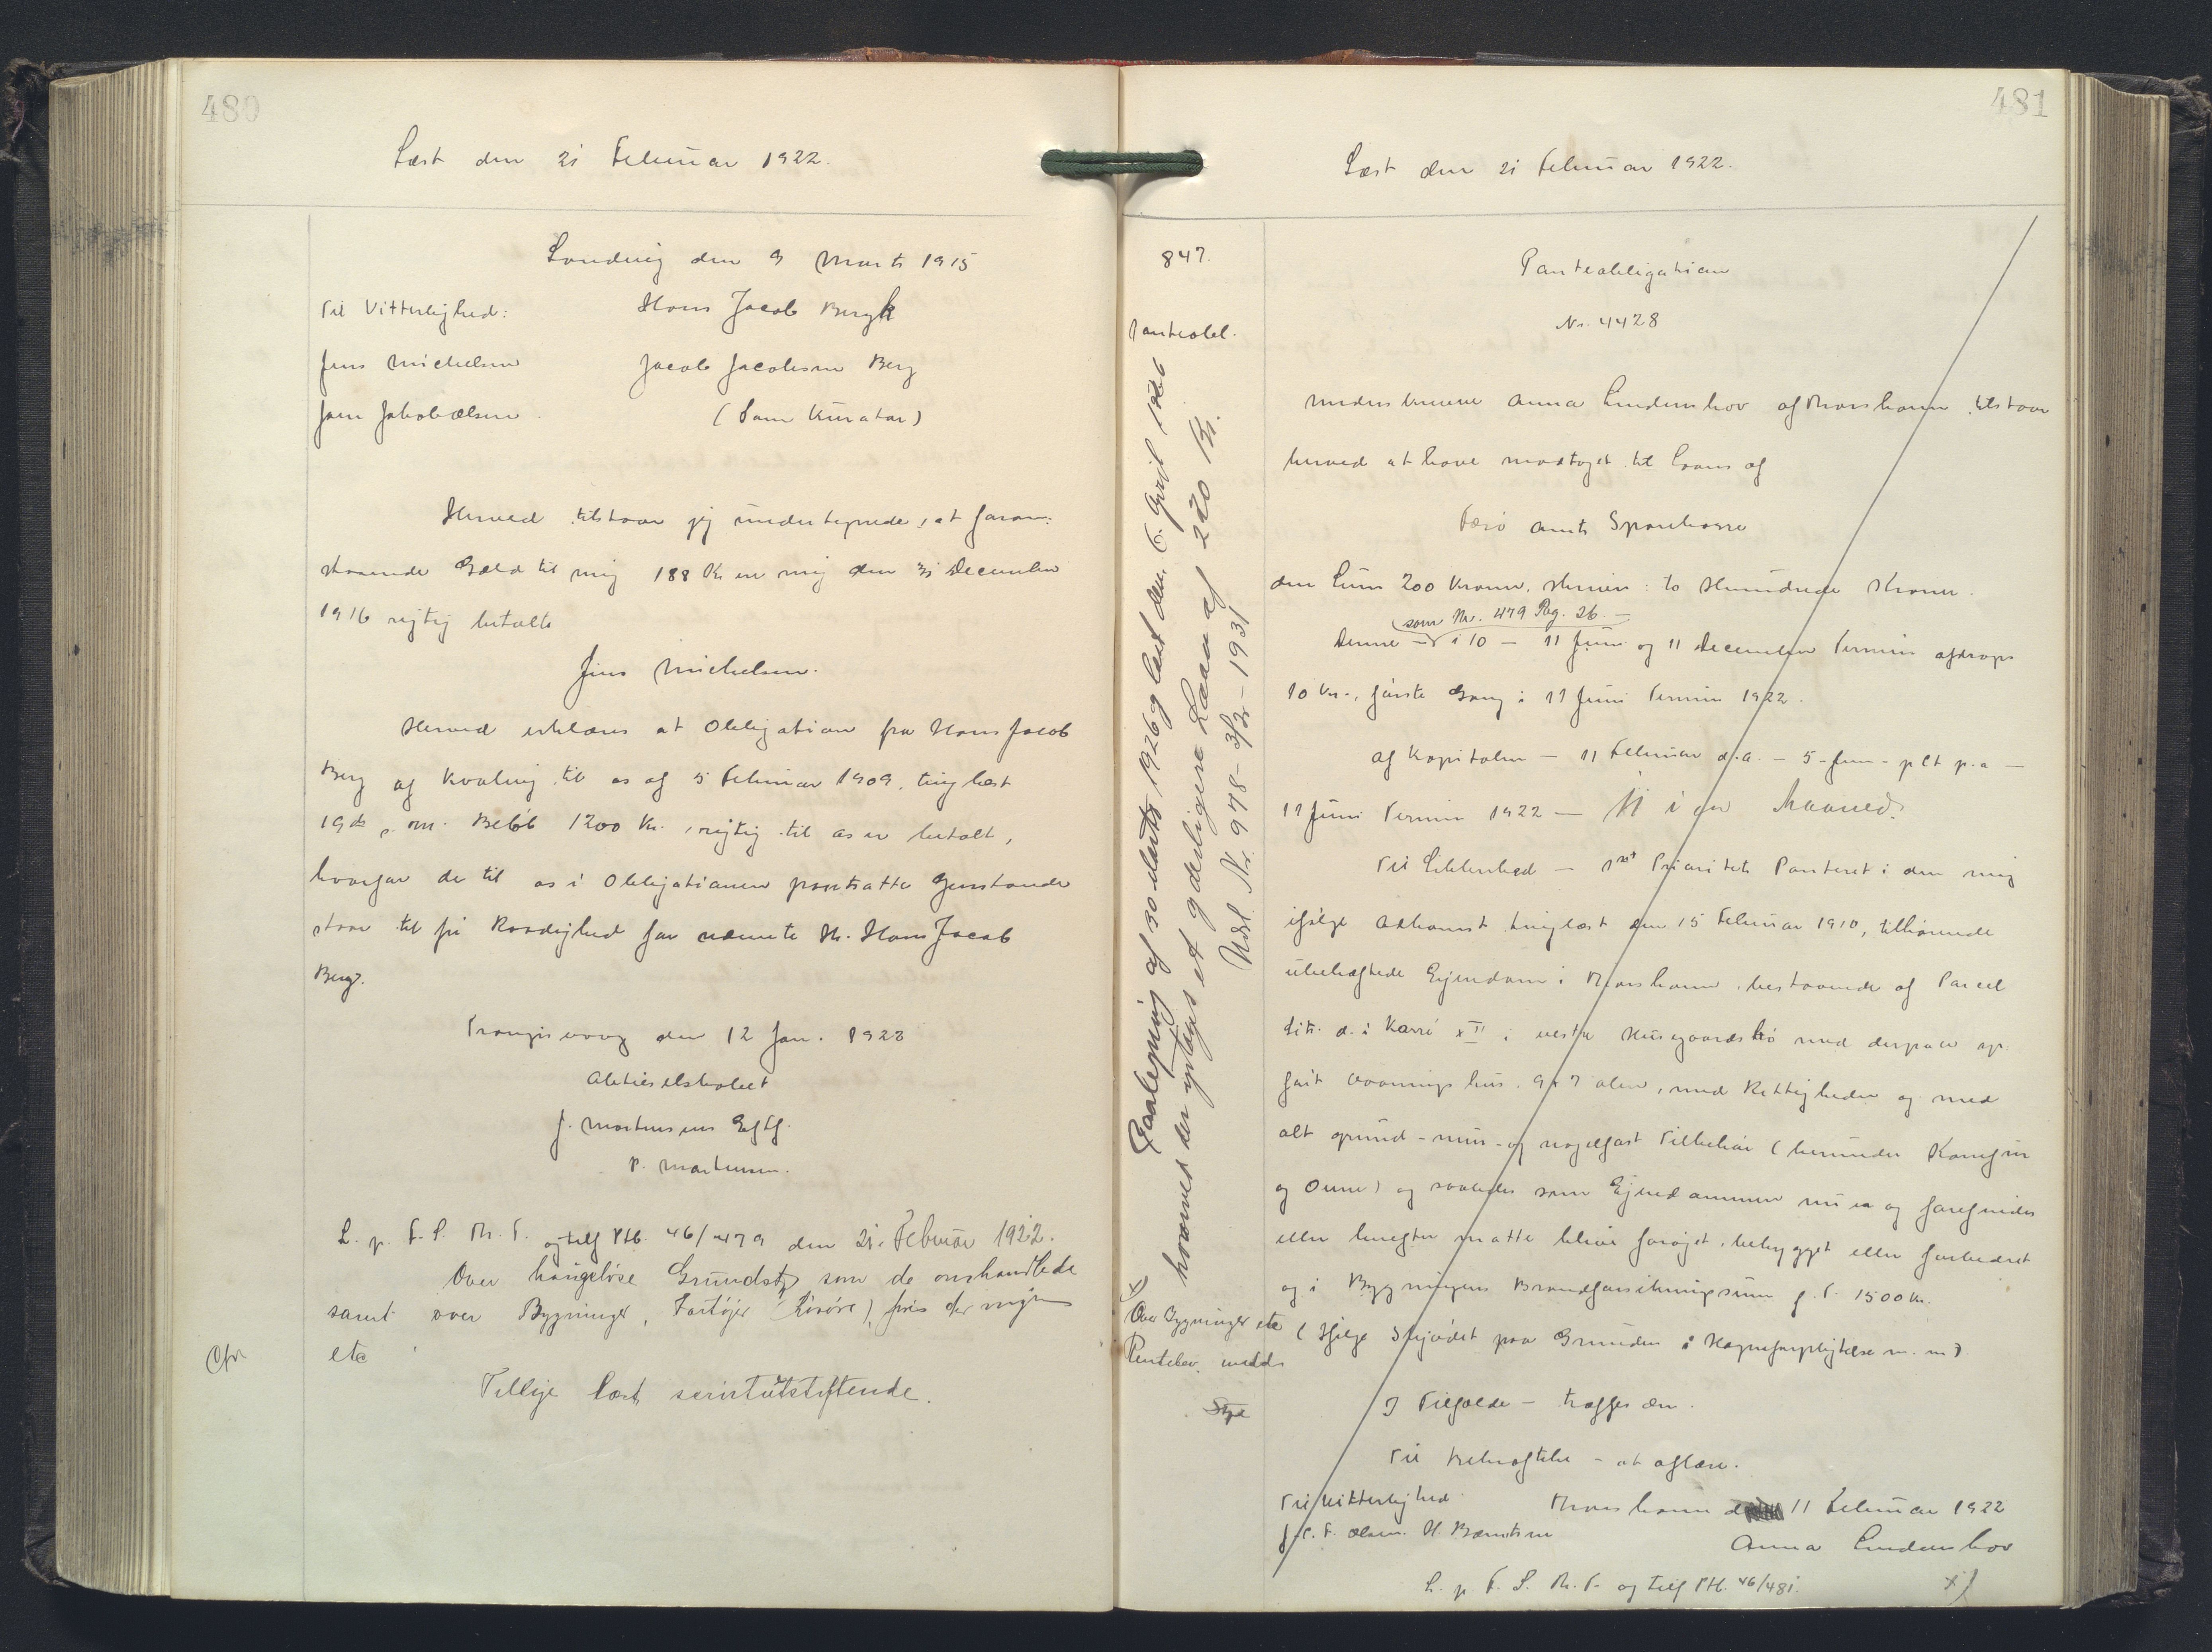 480
Læst den 21 Februar 1922.
Sandvig den 9 Marts 1915
Til Vitterlighed: Hans Jacob Berg
Jens Michelsen Jacob Jacobsen Berg
Joen Jakobælsen (Som Kurator)
Herved tilstaar jeg undertegnede, at foran-
staaende Gæld til mig 188 Kr er mig den 31 December
1916 rigtig betalt
Jens Michelsen.
Herved erklæres at Obligation fra Hans Jacob
Berg af Kvalvig til os af 5 Februar 1909, tinglæst
19 ds, opr. Beløb 1200 Kr., rigtig til os er betalt,
hvorfor de til os i Obligationen pantsatte Genstande
staar til fri Raadighed for nævnte Hr. Hans Jacob
Berg.
Trangisvaag den 12 Jan. 1922
Aktieselskabet
J. Mortensens Eftf.
P. Mortensen.
L. p. F. S. Th. T. og tilf PtB. 46/479 den 21. Februar 1922.
Over haugeløse Grundst som de omhandlede
samt over Bygninger, Fartøjer (Løsøre), hvis der
etc
Cfr
Tillige læst servitutstiftende.
481
Læst den 21 Februar 1922.
847.
Panteobl.
Kvalegning af 30 Marts 1926 læst den 6. April 1926
hvorved der ydes et yderligere Laan af 220 Kr.
Udsl. Nr. 978 - 3/2 - 1931
Over Bygninger etc
Pantelov. medd.
Panteobligation
Nr. 4428
Undertegnede Anna Lindenskov af Thorshavn tilstaar
herved at have modtaget til Laans af
Færø Amts Sparekasse
den Sum 200 Kroner, skriver: to Hundrede Kroner.
som Nr. 479 Pag. 26. -
Denne - i 10 - 11 Juni og 11 December Termin afdrages
10 Kr., første Gang i 11 Juni Termin 1922.
Af Kapitalen - 11 Februar d.A. - 5 - fem - pCt p.a -
11 Juni Termin 1922 - Maaned.
Til Sikkerhed - 1ste Prioritets Panteret i den mig
ifølge Adkomst tinglæst den 15 Februar 1910, tilhørende
ubehæftede Ejendom i Thorshavn, bestaaende af Parcel
Litr. d. i Karré XII, vestre Husegaardsbø med derpaa op-
ført Vaaningshus, 9x7 Alen, med Rettigheder og med
alt grund-, mur- og nagelfast Tilbehør (herunder Komfur
og Ovne) og saaledes som Ejendommen nu er og forefindes
eller herefter matte blive forøget, bebygget eller forbedret
og i Bygningens Brandforsikringssum p. T. 1500 Kr.
(Ifølge Skjødet paa Grunden i Hegnsforpligtelse m. m.)
I Tilfælde - træffes æn.
Til Bekræftelse - at aflæse.
Til Vitterlighed Thorshavn d 11 Februar 1922
J. C. F. Olsen. H. Bærentsen
Anna Lindenskov
L. p. F. S. Th. T. og tilf PtB. 46/481. x)